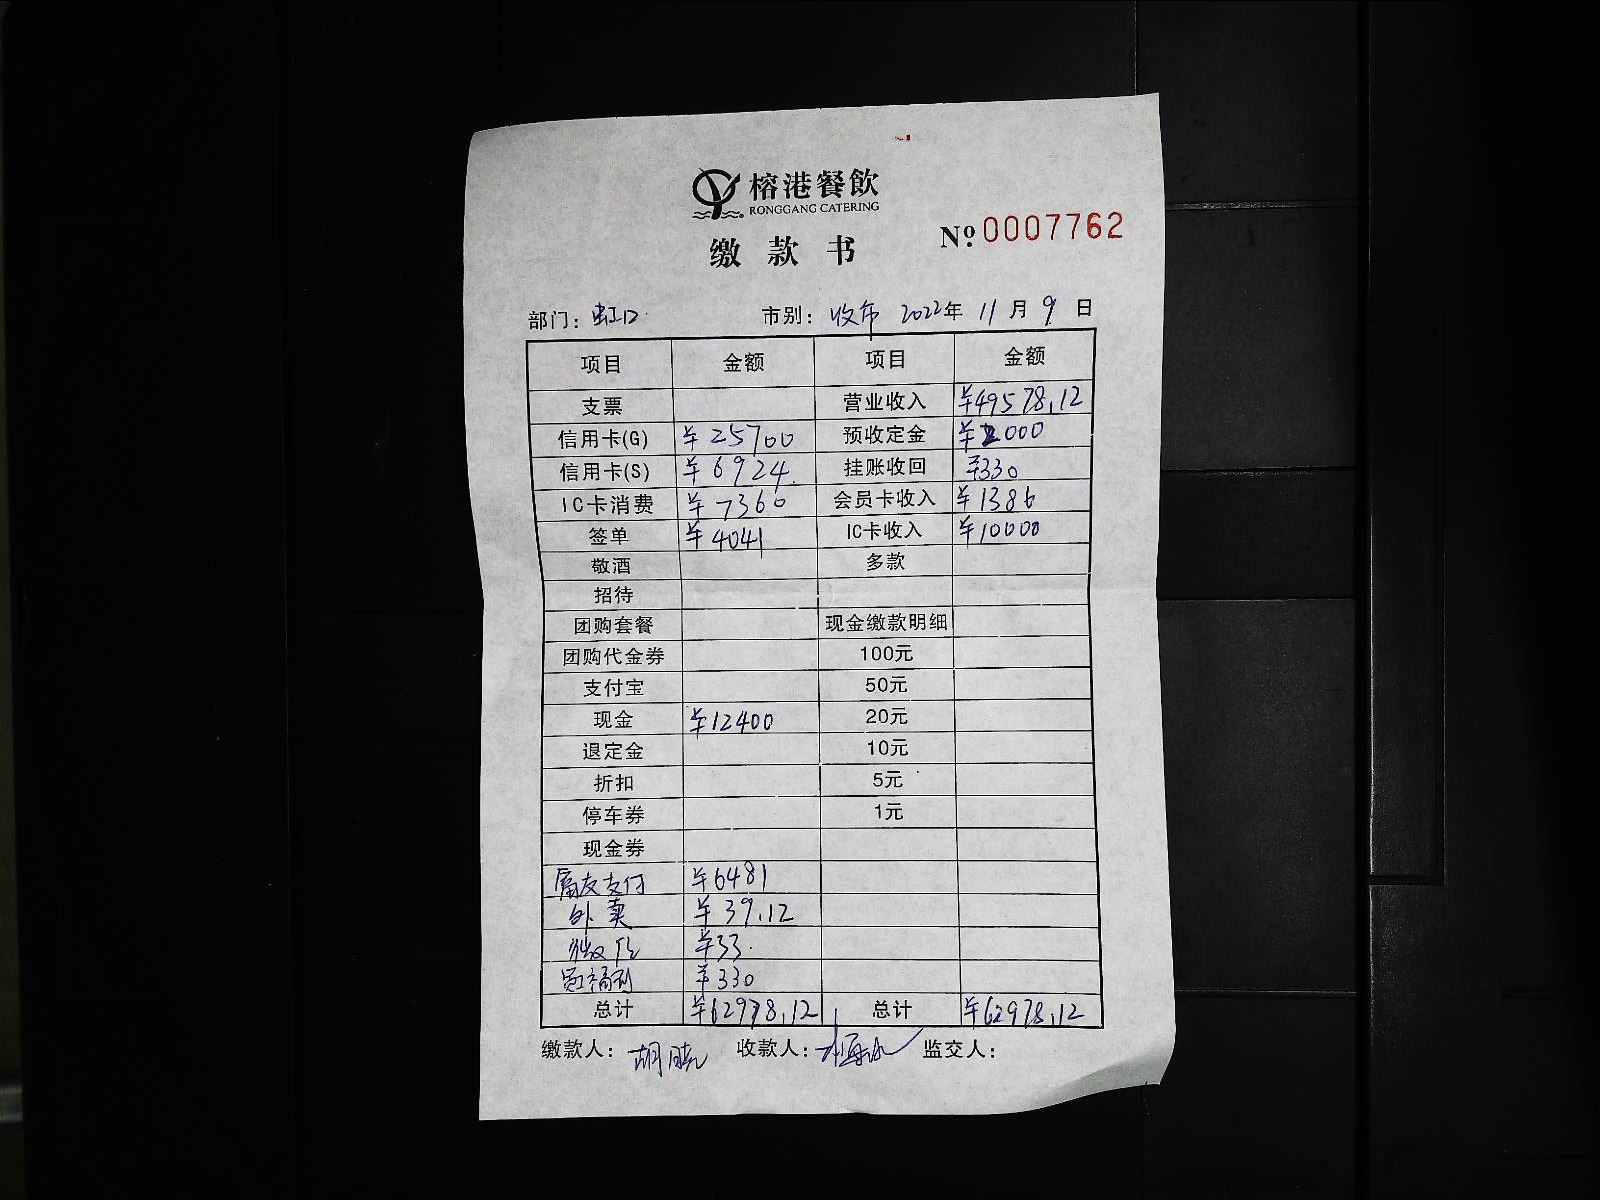 榕港餐飲
RONGGANG CATERING
缴款书
Nº 0007762
部门: 虹口 市别: 收市 2022年 11月 9日
项目 金额 项目 金额
支票 营业收入 ¥49578.12
信用卡(G) ¥25700 预收定金 ¥2000
信用卡(S) ¥6924 挂账收回 ¥330
IC卡消费 ¥7360 会员卡收入 ¥1386
签单 ¥4041 IC卡收入 ¥10000
敬酒 多款
招待
团购套餐 现金缴款明细
团购代金券 100元
支付宝 50元
现金 ¥12400 20元
退定金 10元
折扣 5元
停车券 1元
现金券
支付 ¥6481
外卖 ¥39.12
¥33
福利 ¥330
总计 ¥62978.12 总计 ¥62978.12
缴款人: 胡晓 收款人: 监交人: